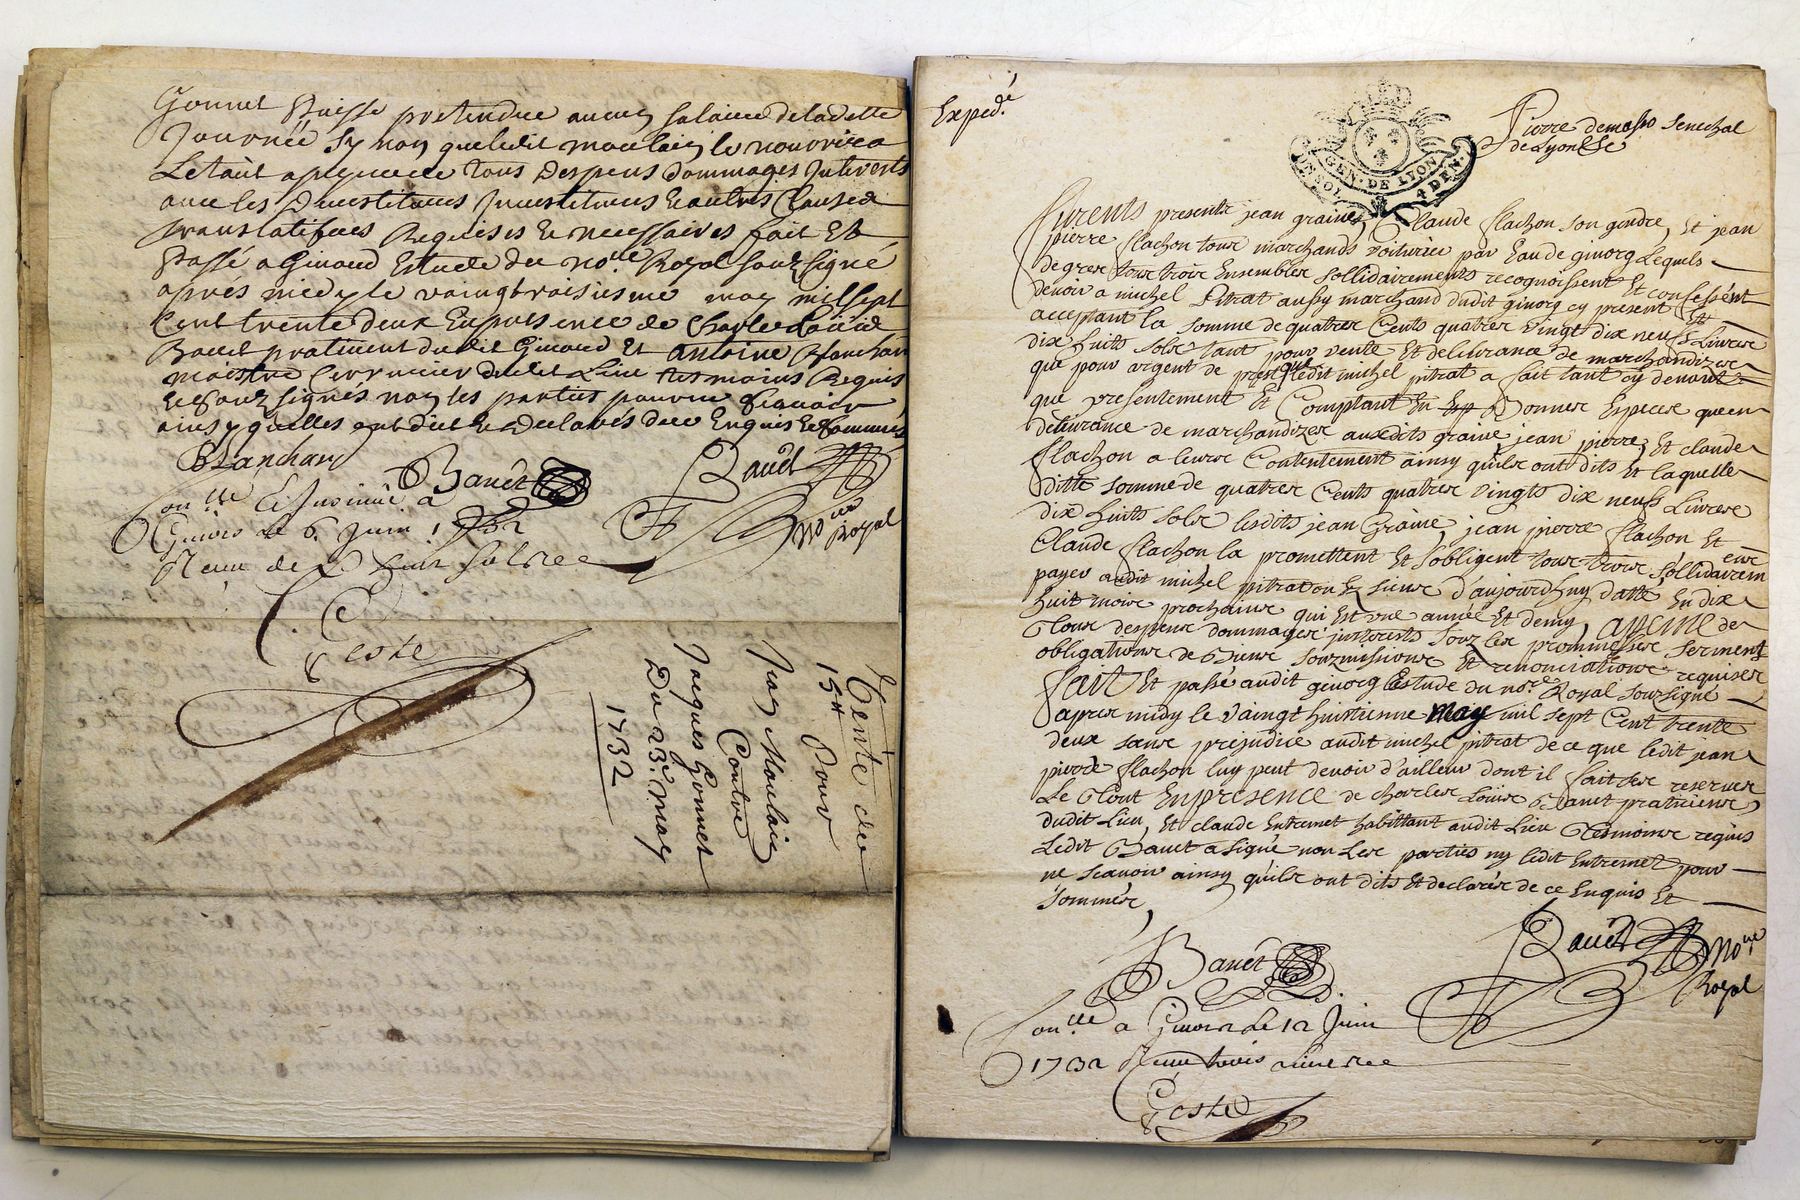 Gonnet Puisse pretendre aucun salaire de ladette
Journée sy non que ledit moulain le nourrira
Le tout a peyne de tous despens dommages Intherests
avec les Devestitures Investitures & autres Clauses
translatifves Requises & necessaires fait Et
Passé a Givord Estude du no.re Royal soubzsigné
apres midy le vaingt troisiesme may mil sept
Cent trente deux En presence de Charle Louis
Bauet praticient dudit Givord Et antoine Blanchard
maistre Cerrurier dudit Lieu tesmoins Requis
& soubzsignés non les parties pour ne scavoir
ainsy qu'elles ont dit & Declarés de ce Enquis & sommés
Blanchard
Bauet
Bauet
no.re Royal
Con.llé & Insinué a
Givors le 6. Juin 1732
Receu
Ceste
Vente de
15# Pour
Jean Moulain
Contre
Jacques Gonnet
Du 23.e may
1732
Exped.é
Pierre demasso Senechal
de Lyon &c
GEN. DE LYON
UN SOL 4 DEN.
Furents presents jean graine, Claude flachon son gendre, Et jean
pierre flachon tous marchands Voituriers par Eau de givorg Lequels
de grer tous trois Ensembler sollidairements recognoissent Et confessent
devoir a michel Pitrat aussy marchand dudit givorg cy present Et
acceptant la somme de quatrer Cents quatrer vingt dix neufs Livrer
dix huits sols tant pour vente Et delivrance de marchandizer
que pour argent de prest que ledit michel pitrat a fait tant cy devant
que presentement Et Comptant En Bonner Especes qu'en
delivrance de marchandizer auxdits graine, jean pierre, Et claude
flachon a leurs Contentement ainsy qu'ils ont dits Et laquelle
ditte somme de quatrer Cents quatrer vingts dix neufs Livrer
dix huits sols lesdits jean Graine, jean pierre flachon Et
Claude flachon la promettent Et s'obligent tous trois sollidairem ents
payer audit michel pitrat ou Es siens d'aujourd'huy datte En dix
huit mois prochains qui Est une année Et demy, apeine de
tous despens dommages jnterests souz les promesses serment
obligations de Biens souzmissions Et renonciations requises
fait Et passé audit givorg Estude du no.re Royal souzsigné
apres midy le Vaingt huitienne may mil sept Cent trente
deux sans prejudice audit michel pitrat de ce que ledit jean
pierre flachon luy peut devoir d'ailleur dont il fait ses reserves
Le tout En presence de charles Louis Bauet praticiens
dudit Lieu, Et claude Entremet habittant audit Lieu tesmoins requis
Ledit Bauet a signé non Les parties ny ledit Entremet pour
ne scavoir ainsy qu'ils ont dits Et declarés de ce Enquis Et
sommés,
Bauet
Bauet no.re
Royal
Con.llé a Givors Le 12 Juin
1732 Receu trois livres
Ceste